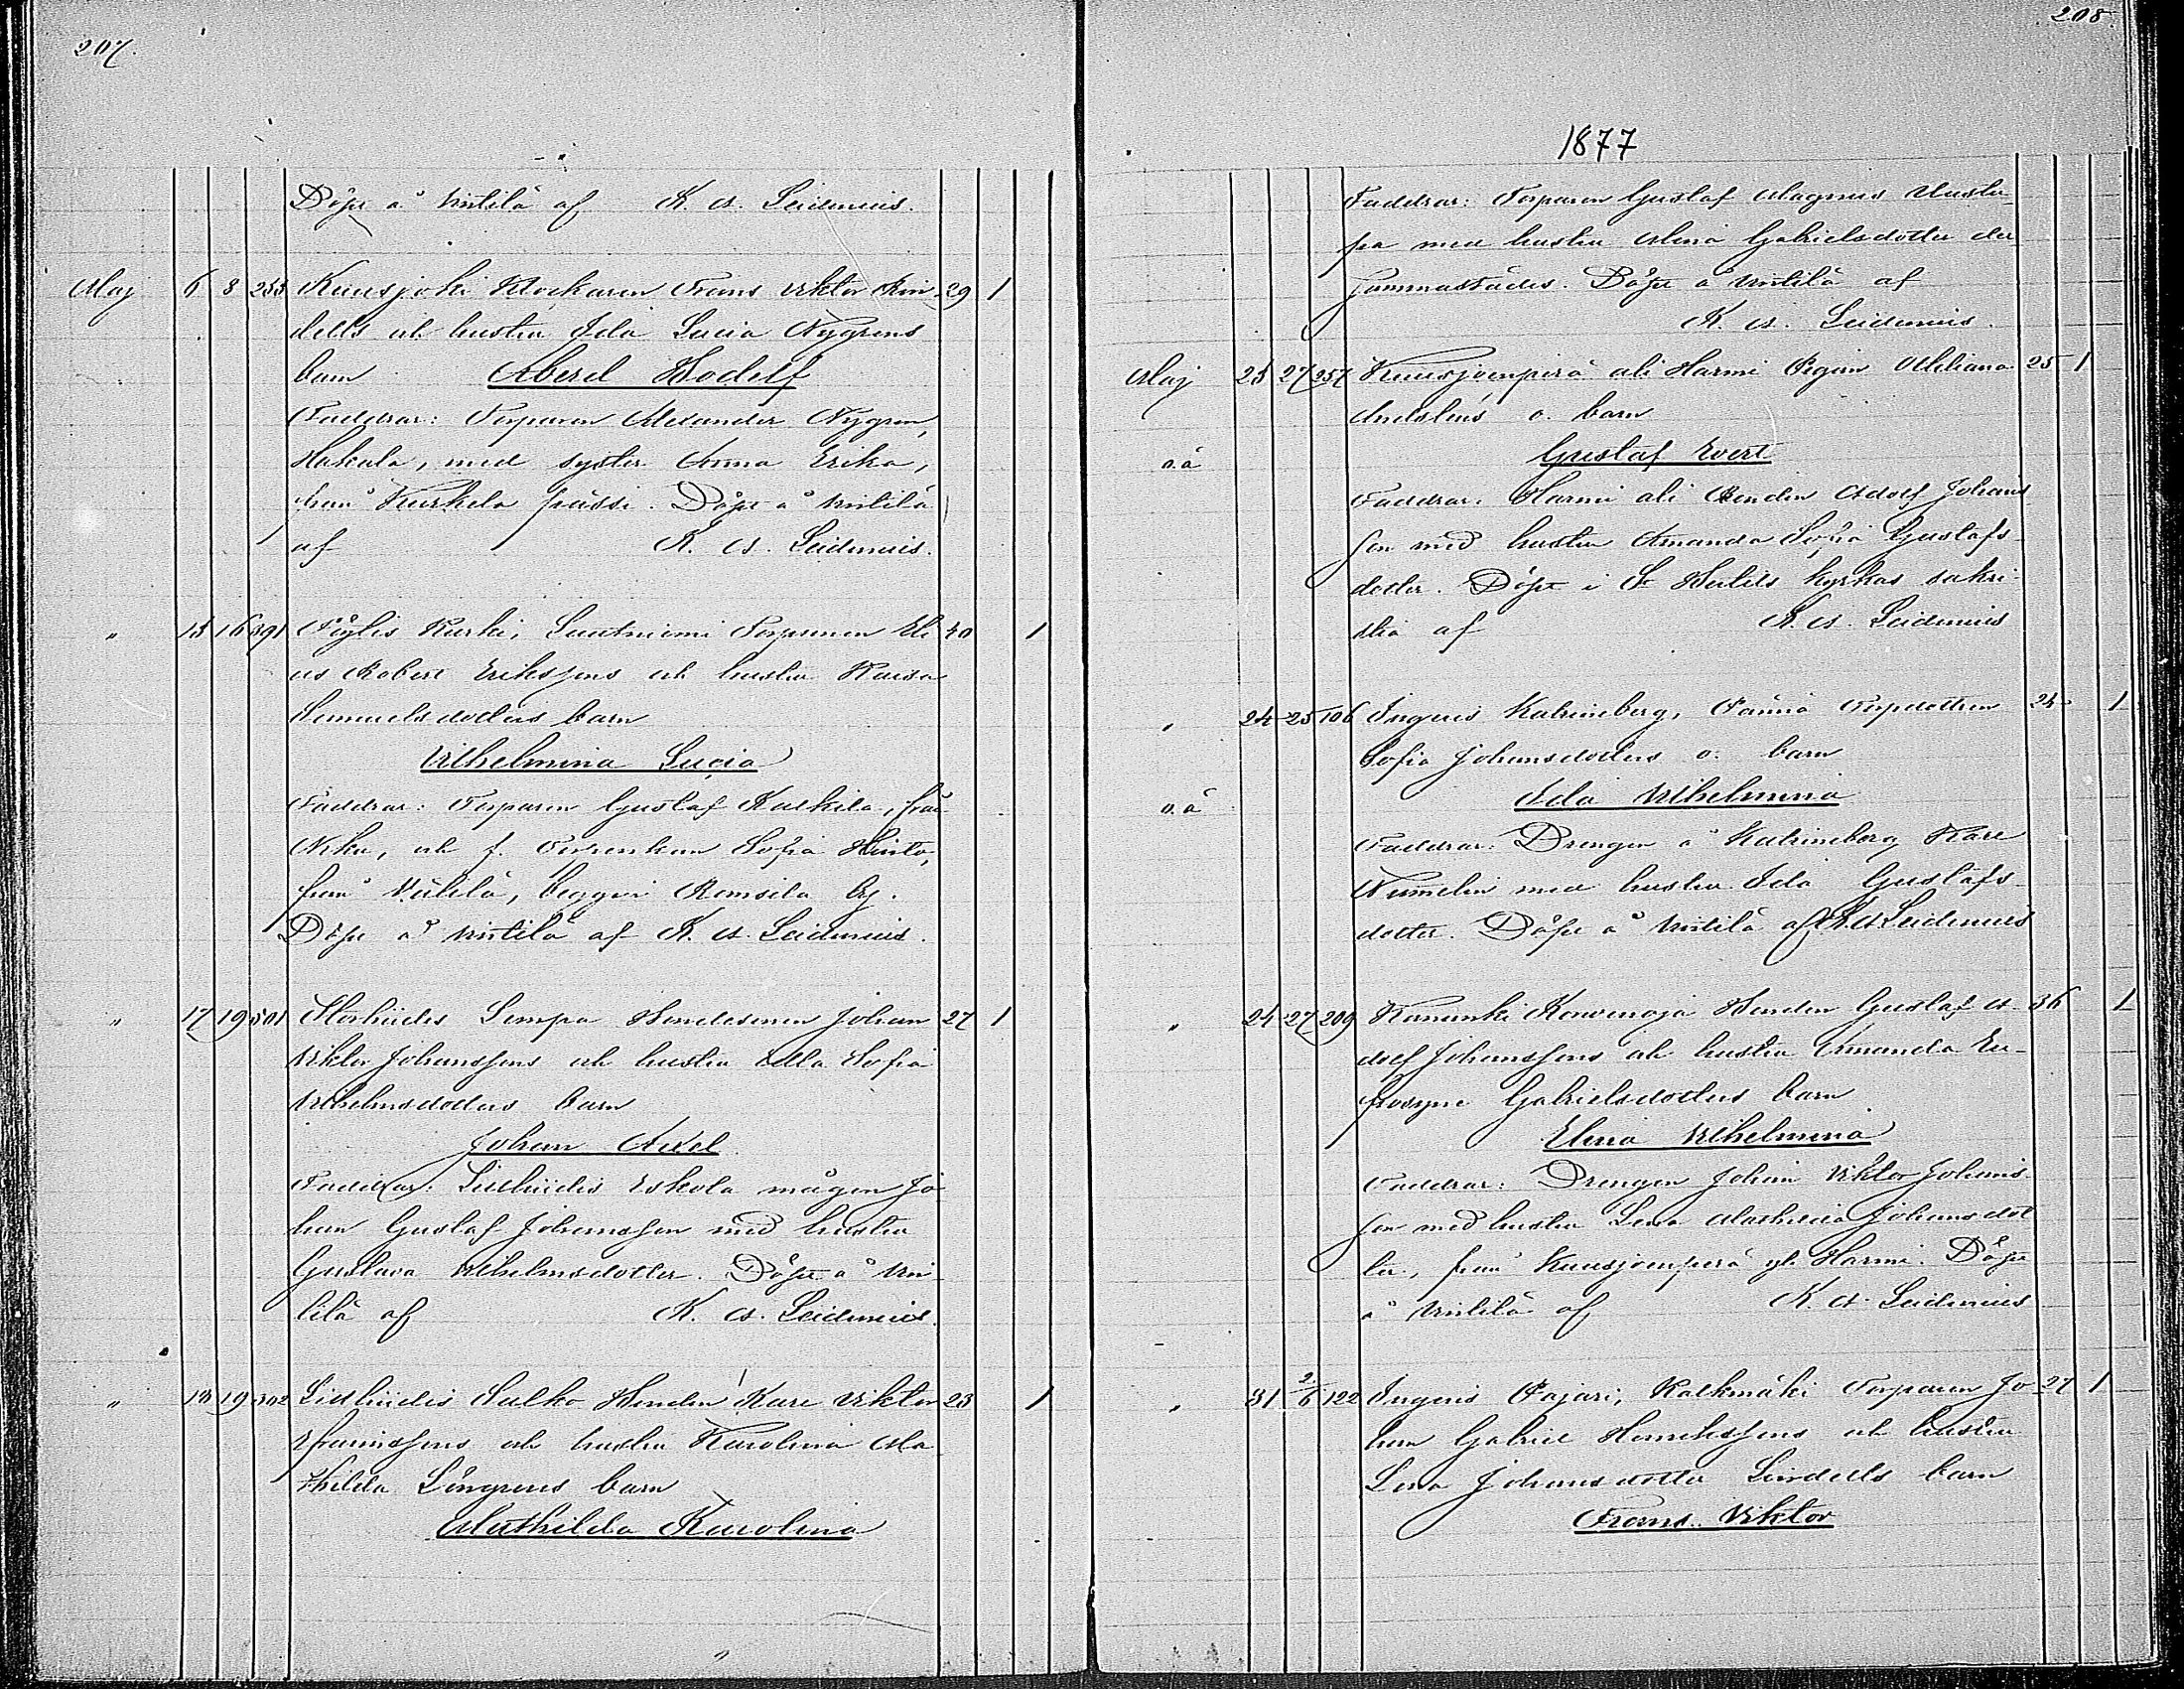 207.
Döpt å Vintilä af K. A. Leidenius.
Maj 6 8 233 Kuusjoki Klockaren Frans Viktor Lin- 29 1
dells och hustru Ida Lucia Nygrens
barn Aberd Hodolf
Faddrar: Torparen Alexander Nygren,
Hakala, med syster Anna Erika,
från Kurkela pässi. Döpt å Vintilä
af K. A. Leidenius.
" 13 16 391 Kurki, Suutniemi Torparen Eli- 40 1
as Robert Erikssons och hustru Kaisa
Samuelsdotters barn
Vilhelmina Lucia
Faddrar: Torparen Gustaf Kalkila, från
och f. Sofia
från Välilä, begge i Romsila by.
Döpt å Vintilä af K. A. Leidenius.
" 17 19 301 Storhiidis Simpa Johan 27 1
Viktor Johanssons och hustru Ulla Sofia
Vilhelmsdotters barn
Johan Axel
Faddrar: Lillhiidis Eskola mågen Jo-
han Gustaf Johansson med hustru
Gustava Vilhelmsdotter. Döpt å Vin-
tilä af K. A. Leidenius.
" 18 19 302 Lillhiidis Sulko Karl Viktor 23 1
Efraimssons och hustru Karolina Ma-
thilda Löngrens barn
Mathilda Karolina
208
1877
Faddrar: Torparen Gustaf Magnus
med hustru Gabrielsdotter der-
sammastädes. Döpt å Vintilä af
K. A. Leidenius.
Maj 23 27 257 Kuusjoenperä ali Harmi Pigan 25 1
o. barn
o.ä Gustaf Evert
Faddrar: Harmi ali Adolf Johans-
son med hustru Amanda Sofia Gustafs-
dotter. Döpt i St Mårtens kyrkas sakri-
stia af K. A. Leidenius
" 24 25 106 Ingeris Katrineberg, Torpdottren 24 1
Sofia Johansdotters o. barn
o.ä Ida Vilhelmina
Faddrar: Drengen å Katrineberg Karl
Numelin med hustru Ida Gustafs-
dotter. Döpt å Vintilä af K. A. Leidenius
" 24 27 209 Kanunki Gustaf A- 36 1
dolf Johanssons och hustru Amanda Eu-
frosyne Gabrielsdotters barn
Elina Vilhelmina
Faddrar: Drengen Johan Viktor Johans-
son med hustru Lena Mathilda Johansdot-
ter, från Kuusjoenperä yli Harmi. Döpt
å Vintilä af K. A. Leidenius
" 31 2/6 122 Ingeris Pajari, Kalkmäki Torparen Jo- 27 1
han Gabriel Henrikssons och hustru
Lena Johansdotter Lindells barn
Frans Viktor